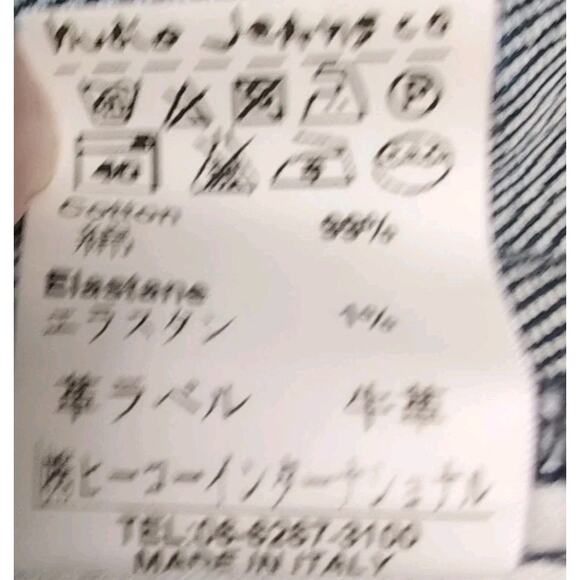 40
Cotton 99%
綿
Elastane
エラスタン 1%
革ラベル 牛革
㈱ヒーコーインターナショナル
TEL:06-6267-3100
MADE IN ITALY